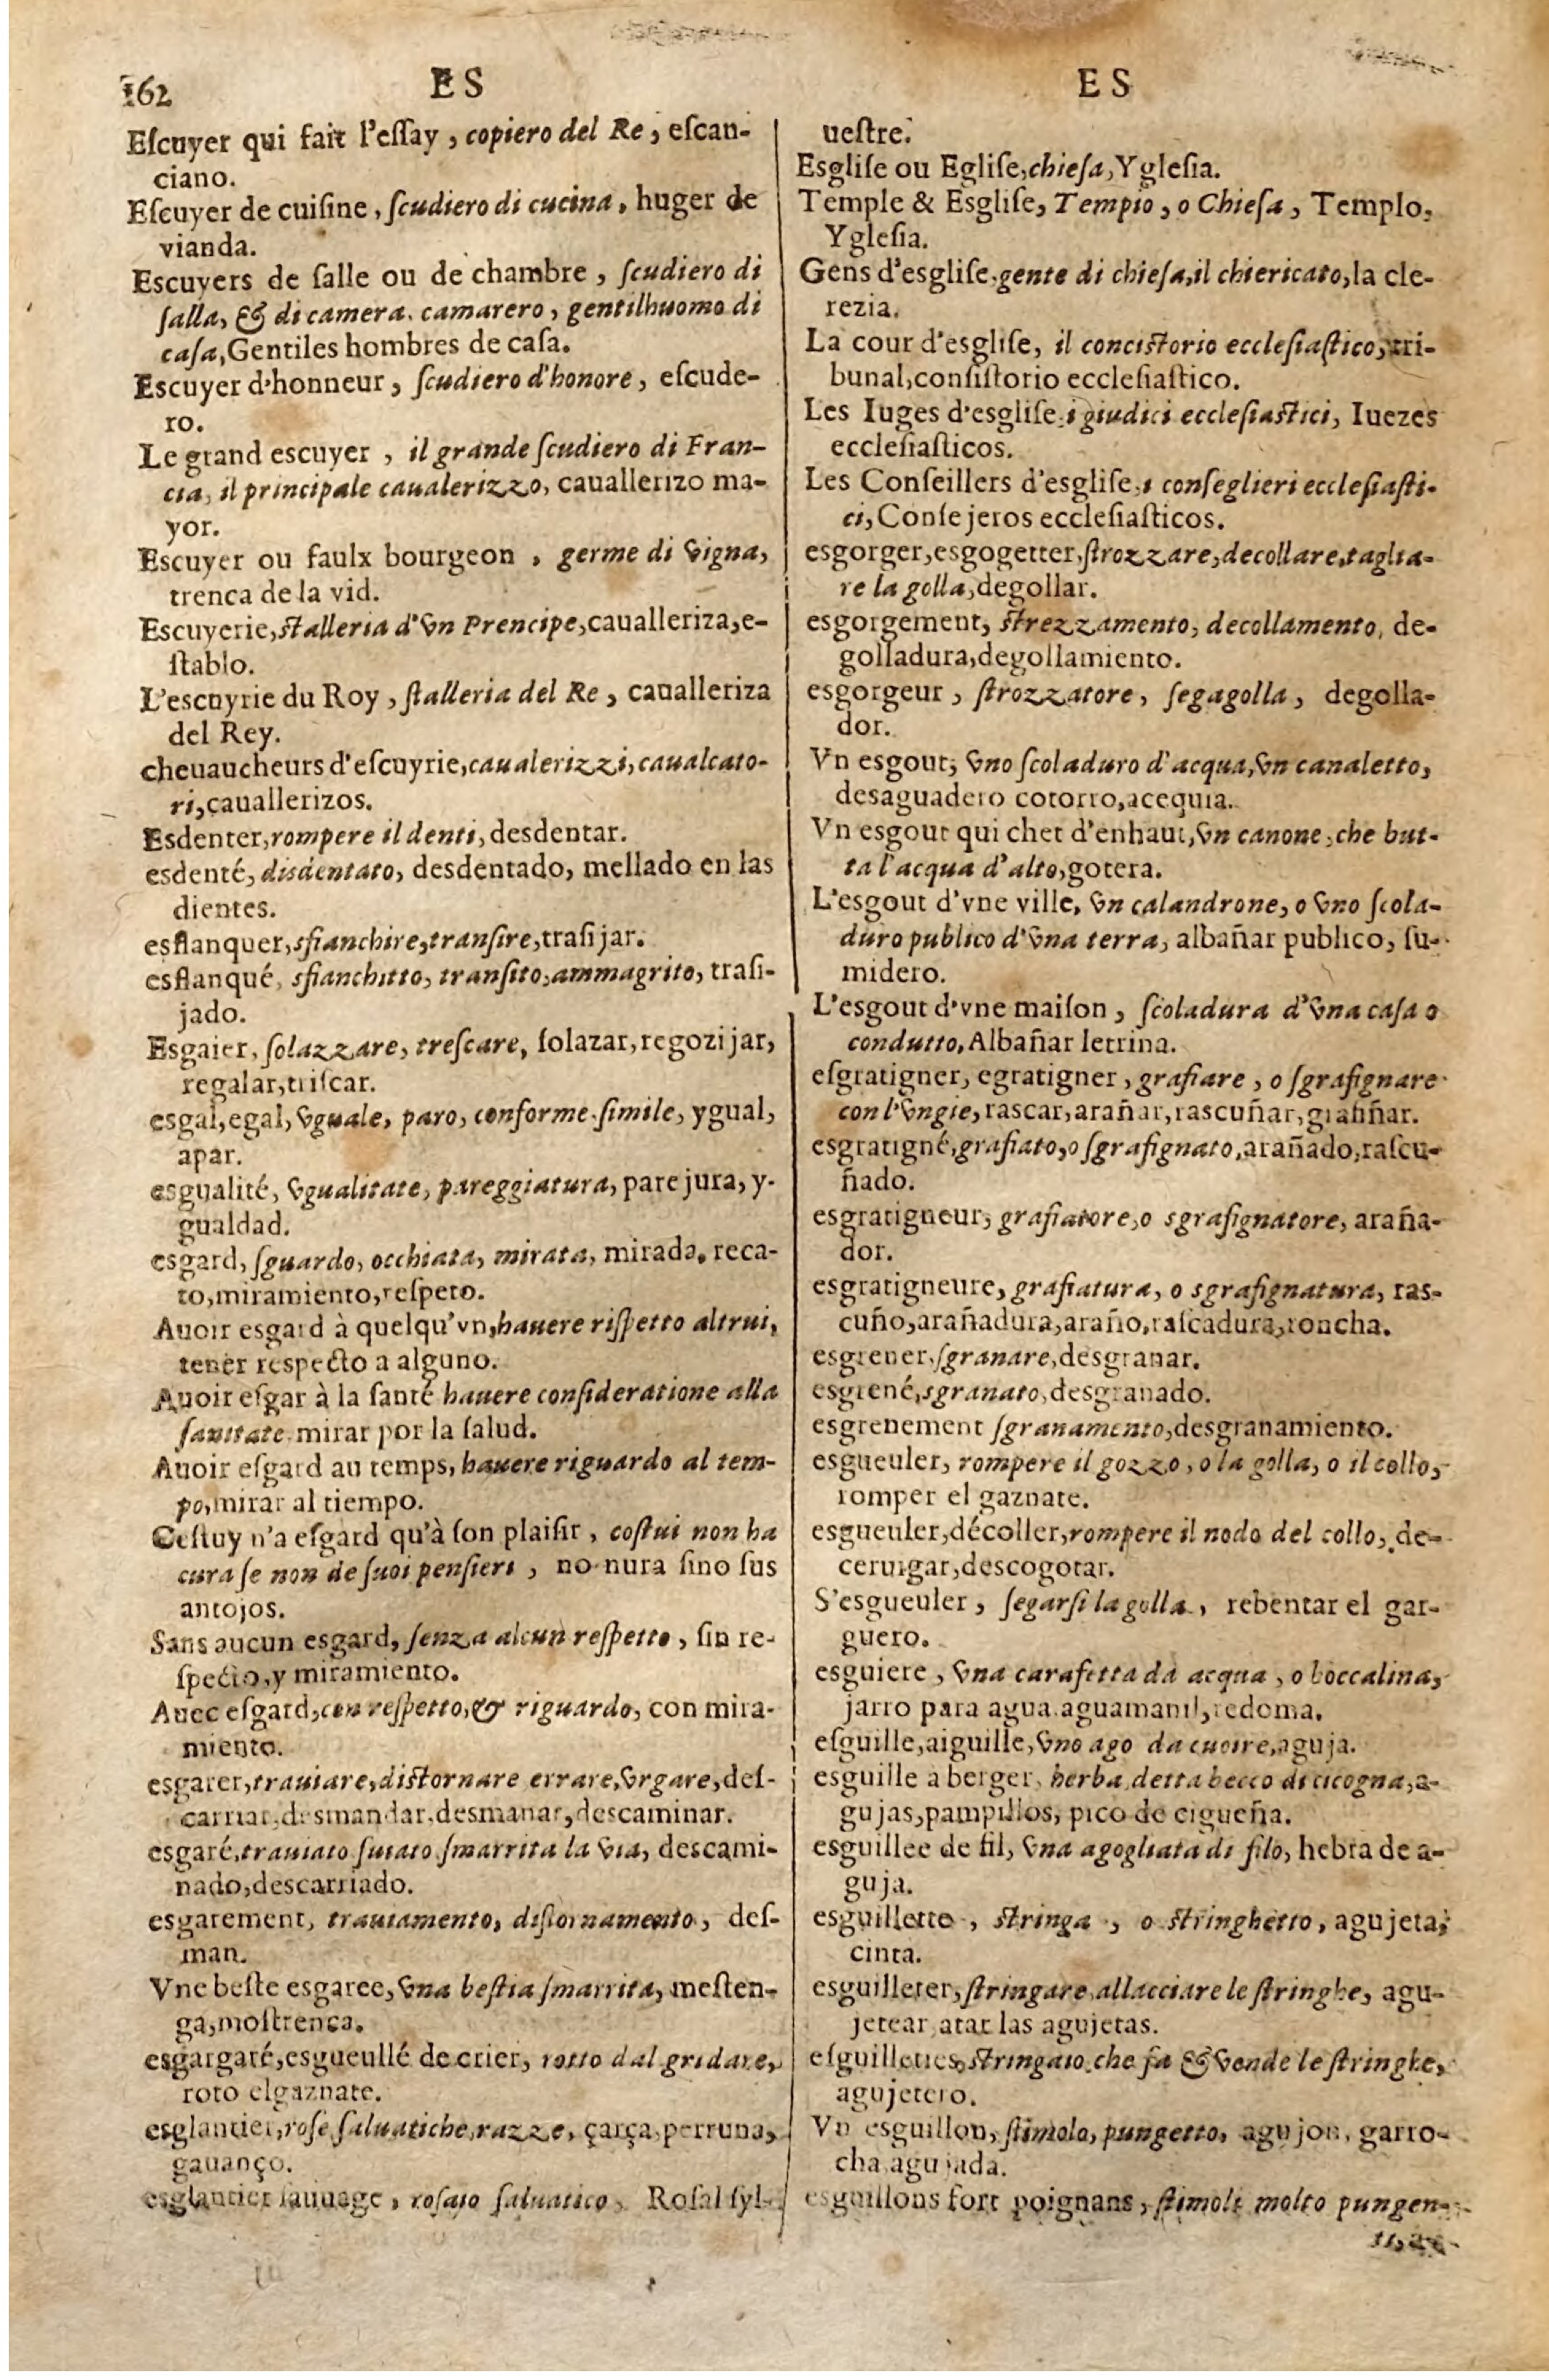 162 ES ES
Eſcuyer qui fait l'eſſay, copiero del Re, eſcan-
ciano.
Eſcuyer de cuiſine, ſcudiero di cucina, huger de
vianda.
Escuyers de ſalle ou de chambre, ſcudiero di
ſalla, & di camera. camarero, gentilhuomo di
caſa, Gentiles hombres de caſa.
Escuyer d'honneur, ſcudiero d'honore, eſcude-
ro.
Le grand escuyer, il grande ſcudiero di Fran-
cia, il principale caualerizzo, cauallerizo ma-
yor.
Escuyer ou faulx bourgeon, germe di vigna,
trenca de la vid.
Escuyerie, stalleria d'vn Prencipe, caualleriza, e-
ſtablo.
L'escuyrie du Roy, ſtalleria del Re, caualleriza
del Rey.
cheuaucheurs d'eſcuyrie, caualerizzi, caualcato-
ri, cauallerizos.
Esdenter, rompere il denti, desdentar.
esdenté, disdentato, desdentado, mellado en las
dientes.
esflanquer, sfianchire, tranſire, traſijar.
esflanqué, sfianchitto, tranſito, ammagrito, traſi-
jado.
Esgaier, ſolazzare, treſcare, ſolazar, regozijar,
regalar, triſcar.
esgal, egal, vguale, paro, conforme. ſimile, ygual,
apar.
esgualité, vgualitate, pareggiatura, parejura, y-
gualdad.
esgard, ſguardo, occhiata, mirata, mirada, reca-
to, miramiento, reſpeto.
Auoir esgard à quelqu'vn, hauere riſpetto altrui,
tener respecto a alguno.
Auoir eſgar à la ſanté hauere conſideratione alla
ſanitate. mirar por la ſalud.
Auoir eſgard au temps, hauere riguardo al tem-
po, mirar al tiempo.
Ceſtuy n'a eſgard qu'à ſon plaiſir, coſtui non ha
cura ſe non de ſuoi penſieri, no nura ſino ſus
antojos.
Sans aucun esgard, ſenza alcun reſpetto, ſin re-
ſpecto, y miramiento.
Auec eſgard, con reſpetto, & riguardo, con mira-
miento.
esgarer, trauiare, distornare errare, vrgare, deſ-
carriar, desmandar, desmanar, descaminar.
esgaré, trauiato ſuiato ſmarrita la via, descami-
nado, descarriado.
esgarement, trauiamento, diſtornamento, deſ-
man.
Vne beſte esgaree, vna beſtia ſmarrita, meſten-
ga, moſtrenca.
esgargaté, esgueullé de crier, rotto dal gridare,
roto el gaznate.
esglantier, roſe ſaluatiche, razze, çarça, perruna,
gauanço.
esglantier ſauuage, roſaio ſaluatico, Roſal ſyl-
ueſtre.
Esgliſe ou Egliſe, chieſa, Ygleſia.
Temple & Esgliſe, Tempio, o Chieſa, Templo,
Ygleſia.
Gens d'esgliſe, gente di chieſa, il chiericato, la cle-
rezia.
La cour d'esgliſe, il concistorio eccleſiaſtico, tri-
bunal, conſiſtorio eccleſiaſtico.
Les Iuges d'esgliſe, i giudici eccleſiastici, Iuezes
eccleſiaſticos.
Les Conſeillers d'esgliſe, i conſeglieri eccleſiaſti-
ci, Conſejeros eccleſiaſticos.
esgorger, esgogetter, ſtrozzare, decollare, taglia-
re la golla, degollar.
esgorgement, strezzamento, decollamento, de-
golladura, degollamiento.
esgorgeur, ſtrozzatore, ſegagolla, degolla-
dor.
Vn esgout, vno ſcoladuro d'acqua, vn canaletto,
desaguadero cotorro, acequia.
Vn esgout qui chet d'enhaut, vn canone, che but-
ta l'acqua d'alto, gotera.
L'esgout d'vne ville, vn calandrone, o vno ſcola-
duro publico d'vna terra, albañar publico, ſu-
midero.
L'esgout d'vne maiſon, ſcoladura d'vna caſa o
condutto, Albañar letrina.
eſgratigner, egratigner, grafiare, o ſgrafignare
con l'vngie, rascar, arañar, rascuñar, grafiñar.
esgratigné, grafiato, o ſgrafignato, arañado, raſcu-
ñado.
esgratigneur, grafiatore, o sgrafignatore, araña-
dor.
esgratigneure, grafiatura, o sgrafignatura, ras-
cuño, arañadura, araño, raſcadura, roncha.
esgrener, ſgranare, desgranar.
esgrené, sgranato, desgranado.
esgrenement ſgranamento, desgranamiento.
esgueuler, rompere il gozzo, o la golla, o il collo,
romper el gaznate.
esgueuler, décoller, rompere il nodo del collo, de-
ceruigar, descogotar.
S'esgueuler, ſegarſi la golla, rebentar el gar-
guero.
esguiere, vna carafetta da acqua, o boccalina,
jarro para agua. aguamanil, redoma.
eſguille, aiguille, vno ago da cucire, aguja.
esguille a berger, herba, detta becco di cicogna, a-
gujas, pampillos, pico de cigueña.
esguillee de fil, vna agogliata di filo, hebra de a-
guja.
esguillette, stringa, o stringhetto, agujeta,
cinta.
esguilleter, ſtringare, allacciare le ſtringhe, agu-
jetear, atar las agujetas.
eſguilletier, stringaio, che fa & vende le ſtringhe,
agujetero.
Vn esguillon, ſtimolo, pungetto, agujon, garro-
cha, agujada.
esguillons fort poignans, ſtimoli molto pungen-